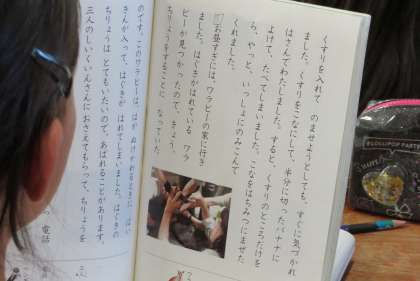 くすりを入れて のませようとしても、すぐに気づかれ
ました。くすりをこなにして、半分に切ったバナナに
はさんでわたしました。すると、くすりのところだけを
よけて、たべてしまいました。こなをはちみつにまぜた
ら、やっと、いっしょにのみこんで
くれました。
お昼すぎには、ワラビーの家に行き
ました。はぐきがはれている ワラ
ビーが見つかったので、きょう、
ちりょうをすることに なっていた
のです。このワラビーは、はが ぬけかわるときに、ばい
きんが入って、はぐきが はれてしまいました。はぐきの
ちりょうは とてもいたいので、あばれることがあります。
三人のしいくいんさんに おさえてもらって、ちりょうを
電話
LOLLIPOP PART